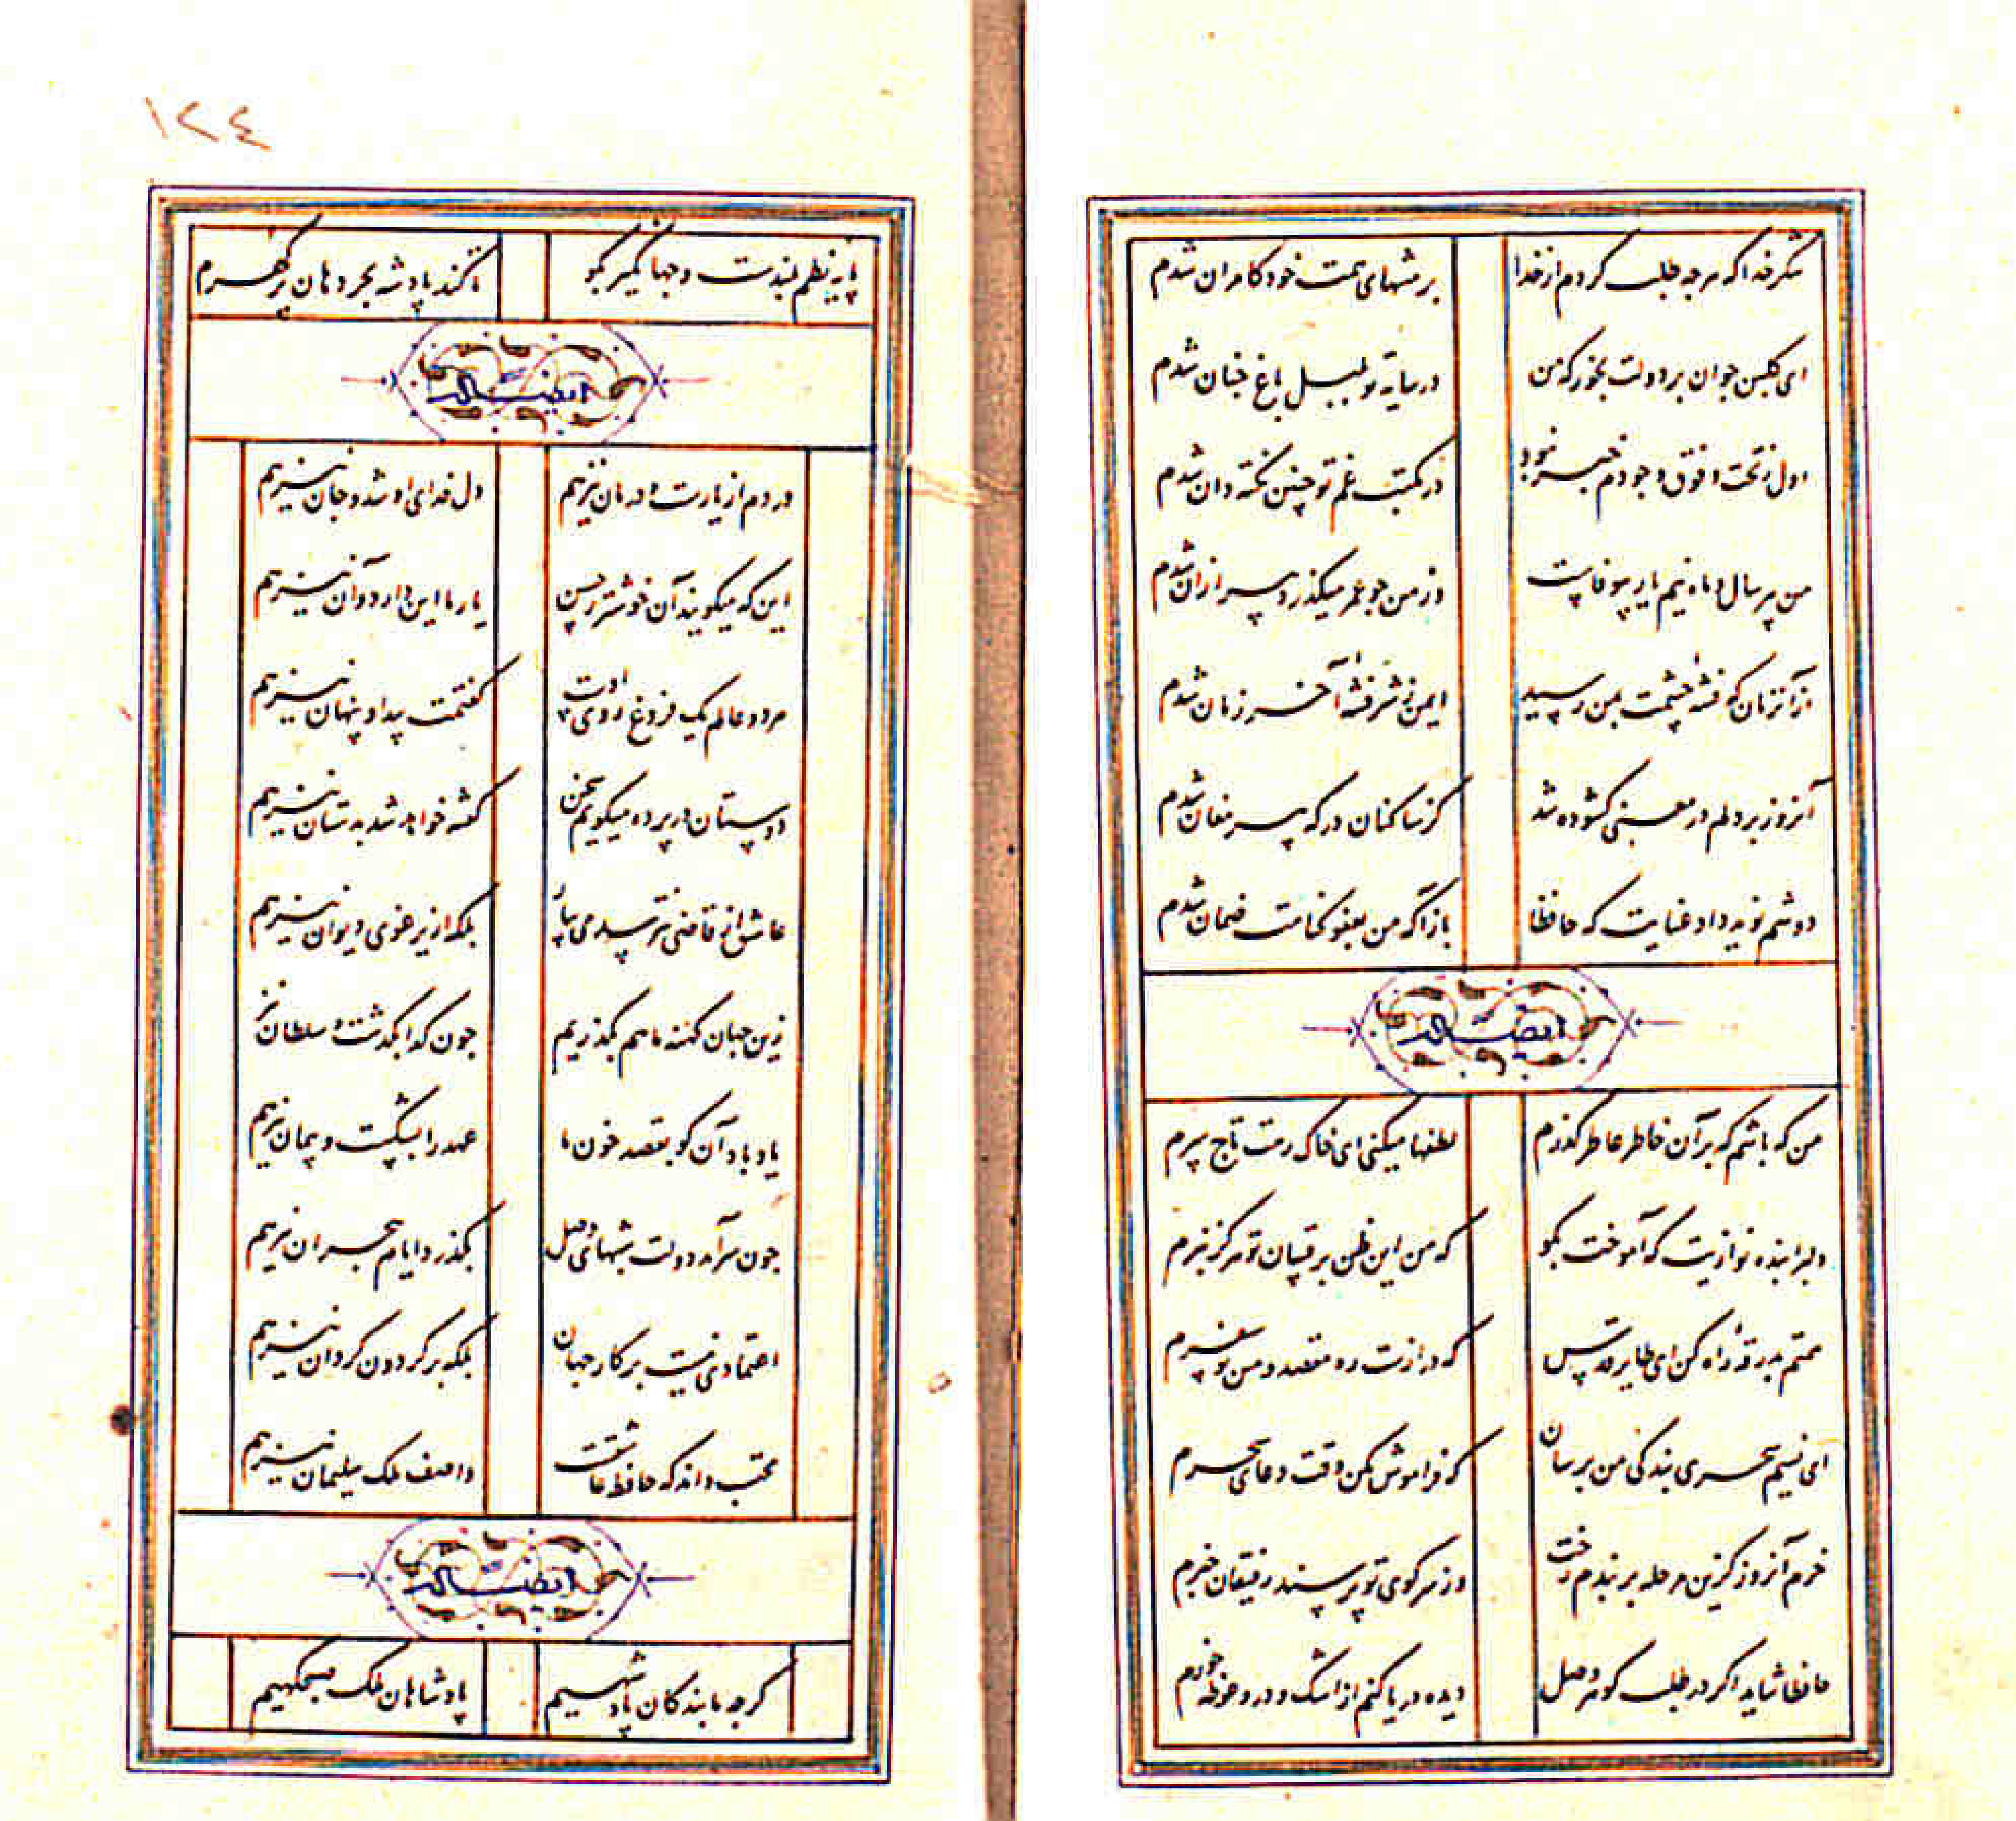 شکر خدا که هرچه طلب کردم از خدا بر منتهای همت خود کامران شدم
ای گلبن جوان بر دولت بخور که من در سایه تو بلبل باغ جنان شدم
اول ز تحت و فوق وجودم خبر نبود در مکتب غم تو چنین نکته دان شدم
من پیر سال و ماه نیم یار بیوفاست وز من چو عمر میگذرد پیر از آن شدم
از آنزمان که فتنه چشمت بمن رسید ایمن ز شر فتنه آخر زمان شدم
آنروز بر دلم در معنی گشوده شد کز ساکنان درگه پیر مغان شدم
دوشم نوید داد عنایت که حافظا بازآ که من بعفو گناهت ضمان شدم
ایضا له
من که باشم که بر آن خاطر عاطر گذرم لطفها میکنی ای خاک رهت تاج سرم
دلبرا بنده نوازیت که آموخت بگو که من این ظن برقیبان تو هرگز نبرم
همتم بدرقه راه کن ای طایر قدس که درازست ره مقصد و من نوسفرم
ای نسیم سحری بندگی من برسان که فراموش مکن وقت دعای سحرم
خرم آنروز کزین مرحله بربندم رخت وز سر کوی تو پرسند رفیقان خبرم
حافظا شاید اگر در طلب گوهر وصل دیده دریا کنم از اشک و درو غوطه خورم
١٢٤
پایه نظم بلندست و جهانگیر بگو تا کند پادشه بحر دهان پر گهرم
ایضا له
دردم از یارست و درمان نیز هم دل فدای او شد و جان نیز هم
این که میگویند آن خوشتر ز حسن یار ما این دارد و آن نیز هم
هر دو عالم یک فروغ روی اوست گفتمت پیدا و پنهان نیز هم
دوستان در پرده میگویم سخن گفته خواهد شد بدستان نیز هم
عاشق از قاضی نترسد می بیار بلکه از یرغوی دیوان نیز هم
زین جهان کهنه ما هم بگذریم چون گدا بگذشت و سلطان نیز
یاد باد آن کو بقصد خون ما عهد را بشکست و پیمان نیز هم
چون سرآمد دولت شبهای وصل بگذرد ایام هجران نیز هم
اعتمادی نیست بر کار جهان بلکه بر گردون گردان نیز هم
محتسب داند که حافظ عاشقست واصف ملک سلیمان نیز هم
ایضا له
گرچه ما بندگان پادشهیم پادشاهان ملک صبحگهیم